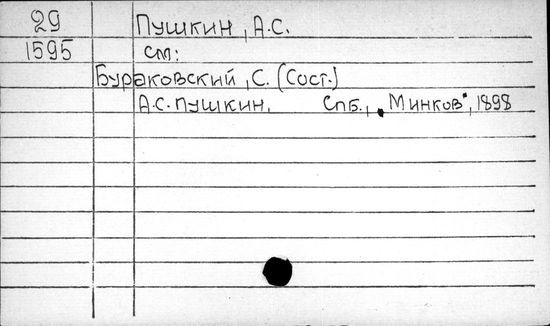 29 Пушкин, А.С.
1595 см:
Бураковский, С. (Сост.)
А.С. Пушкин. Спб., „Минков", 1898